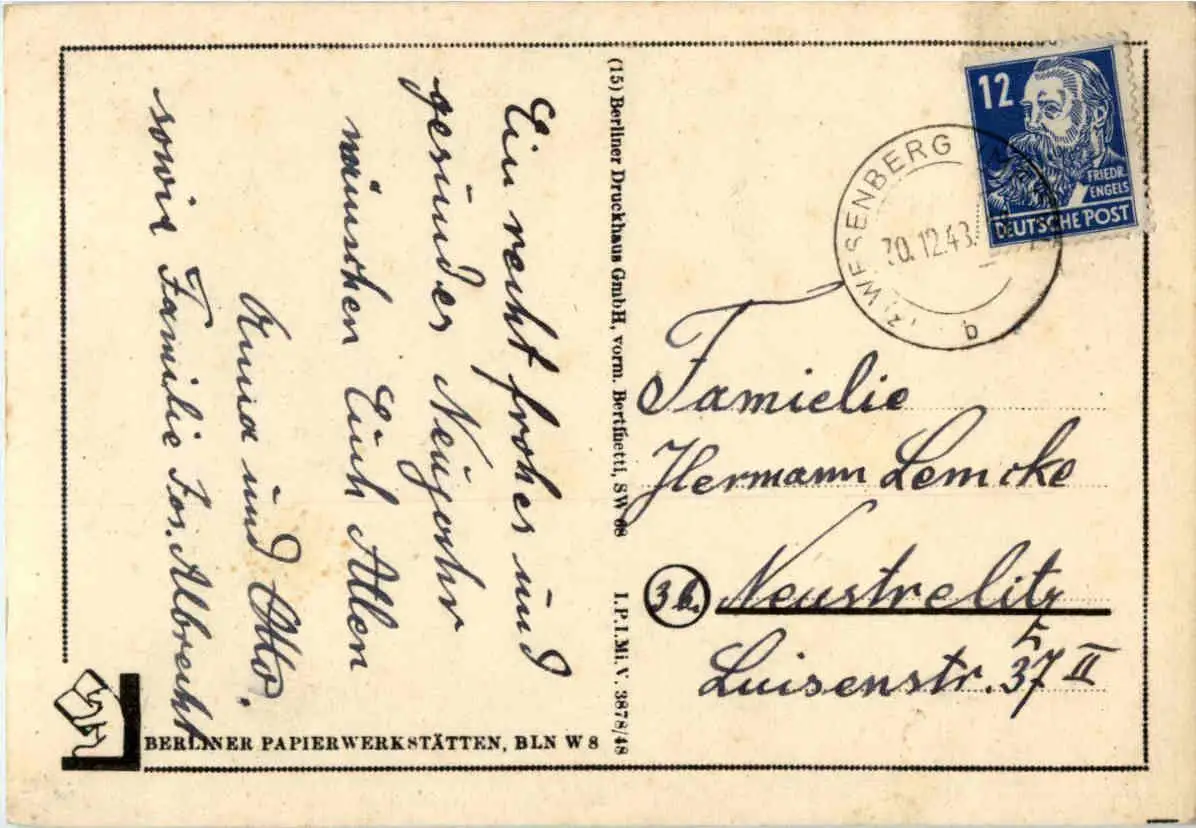 Ein recht frohes und
gesundes Neujahr
wünschen Euch Allen
Anna und Otto.
sowie Familie Jos. Albrecht
(15) Berliner Druckhaus GmbH, vorm. Bertinetti, SW 68 I.P.I.Mi.V. 3878/48
BERLINER PAPIERWERKSTÄTTEN, BLN W 8
12
FRIEDR.
ENGELS
DEUTSCHE POST
WESENBERG
30.12.48
b
Famielie
Hermann Lemcke
3b. Neustrelitz
Luisenstr. 37 II